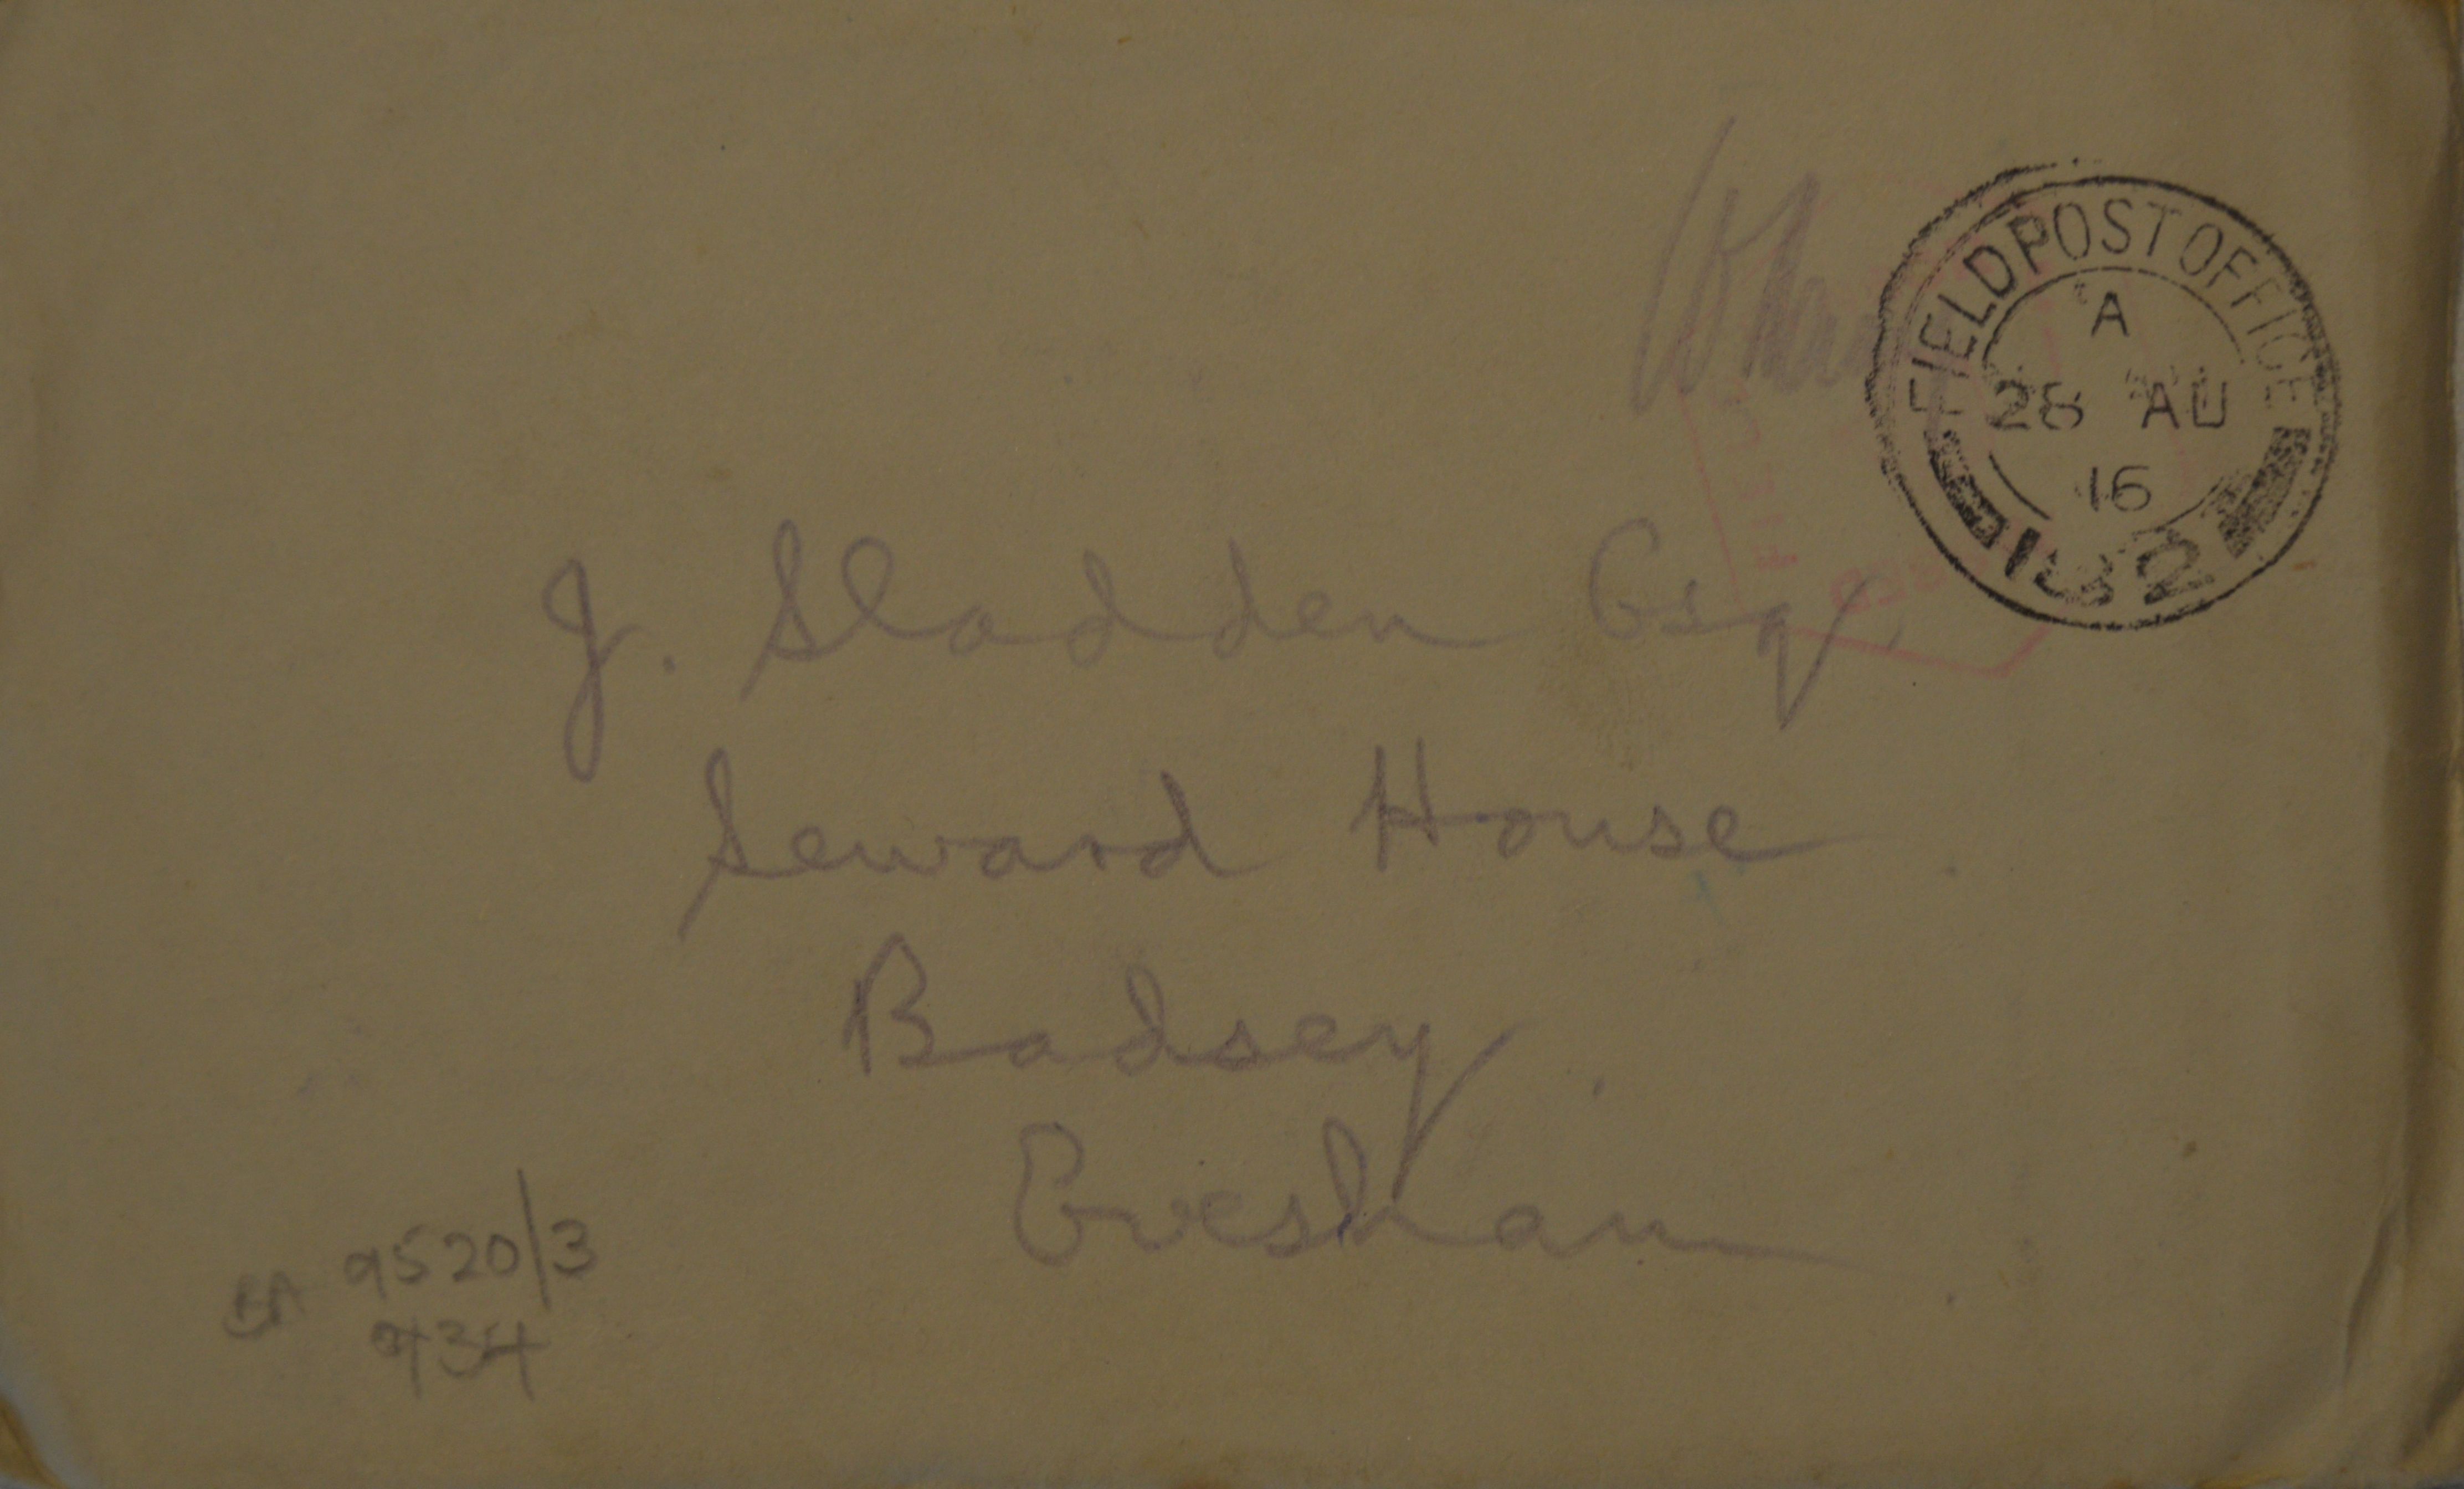 FIELD POST OFFICE
A
28 AU
16
J. Sladden Esq.
Seward House
Badsey
Evesham
BA 9520/3
734